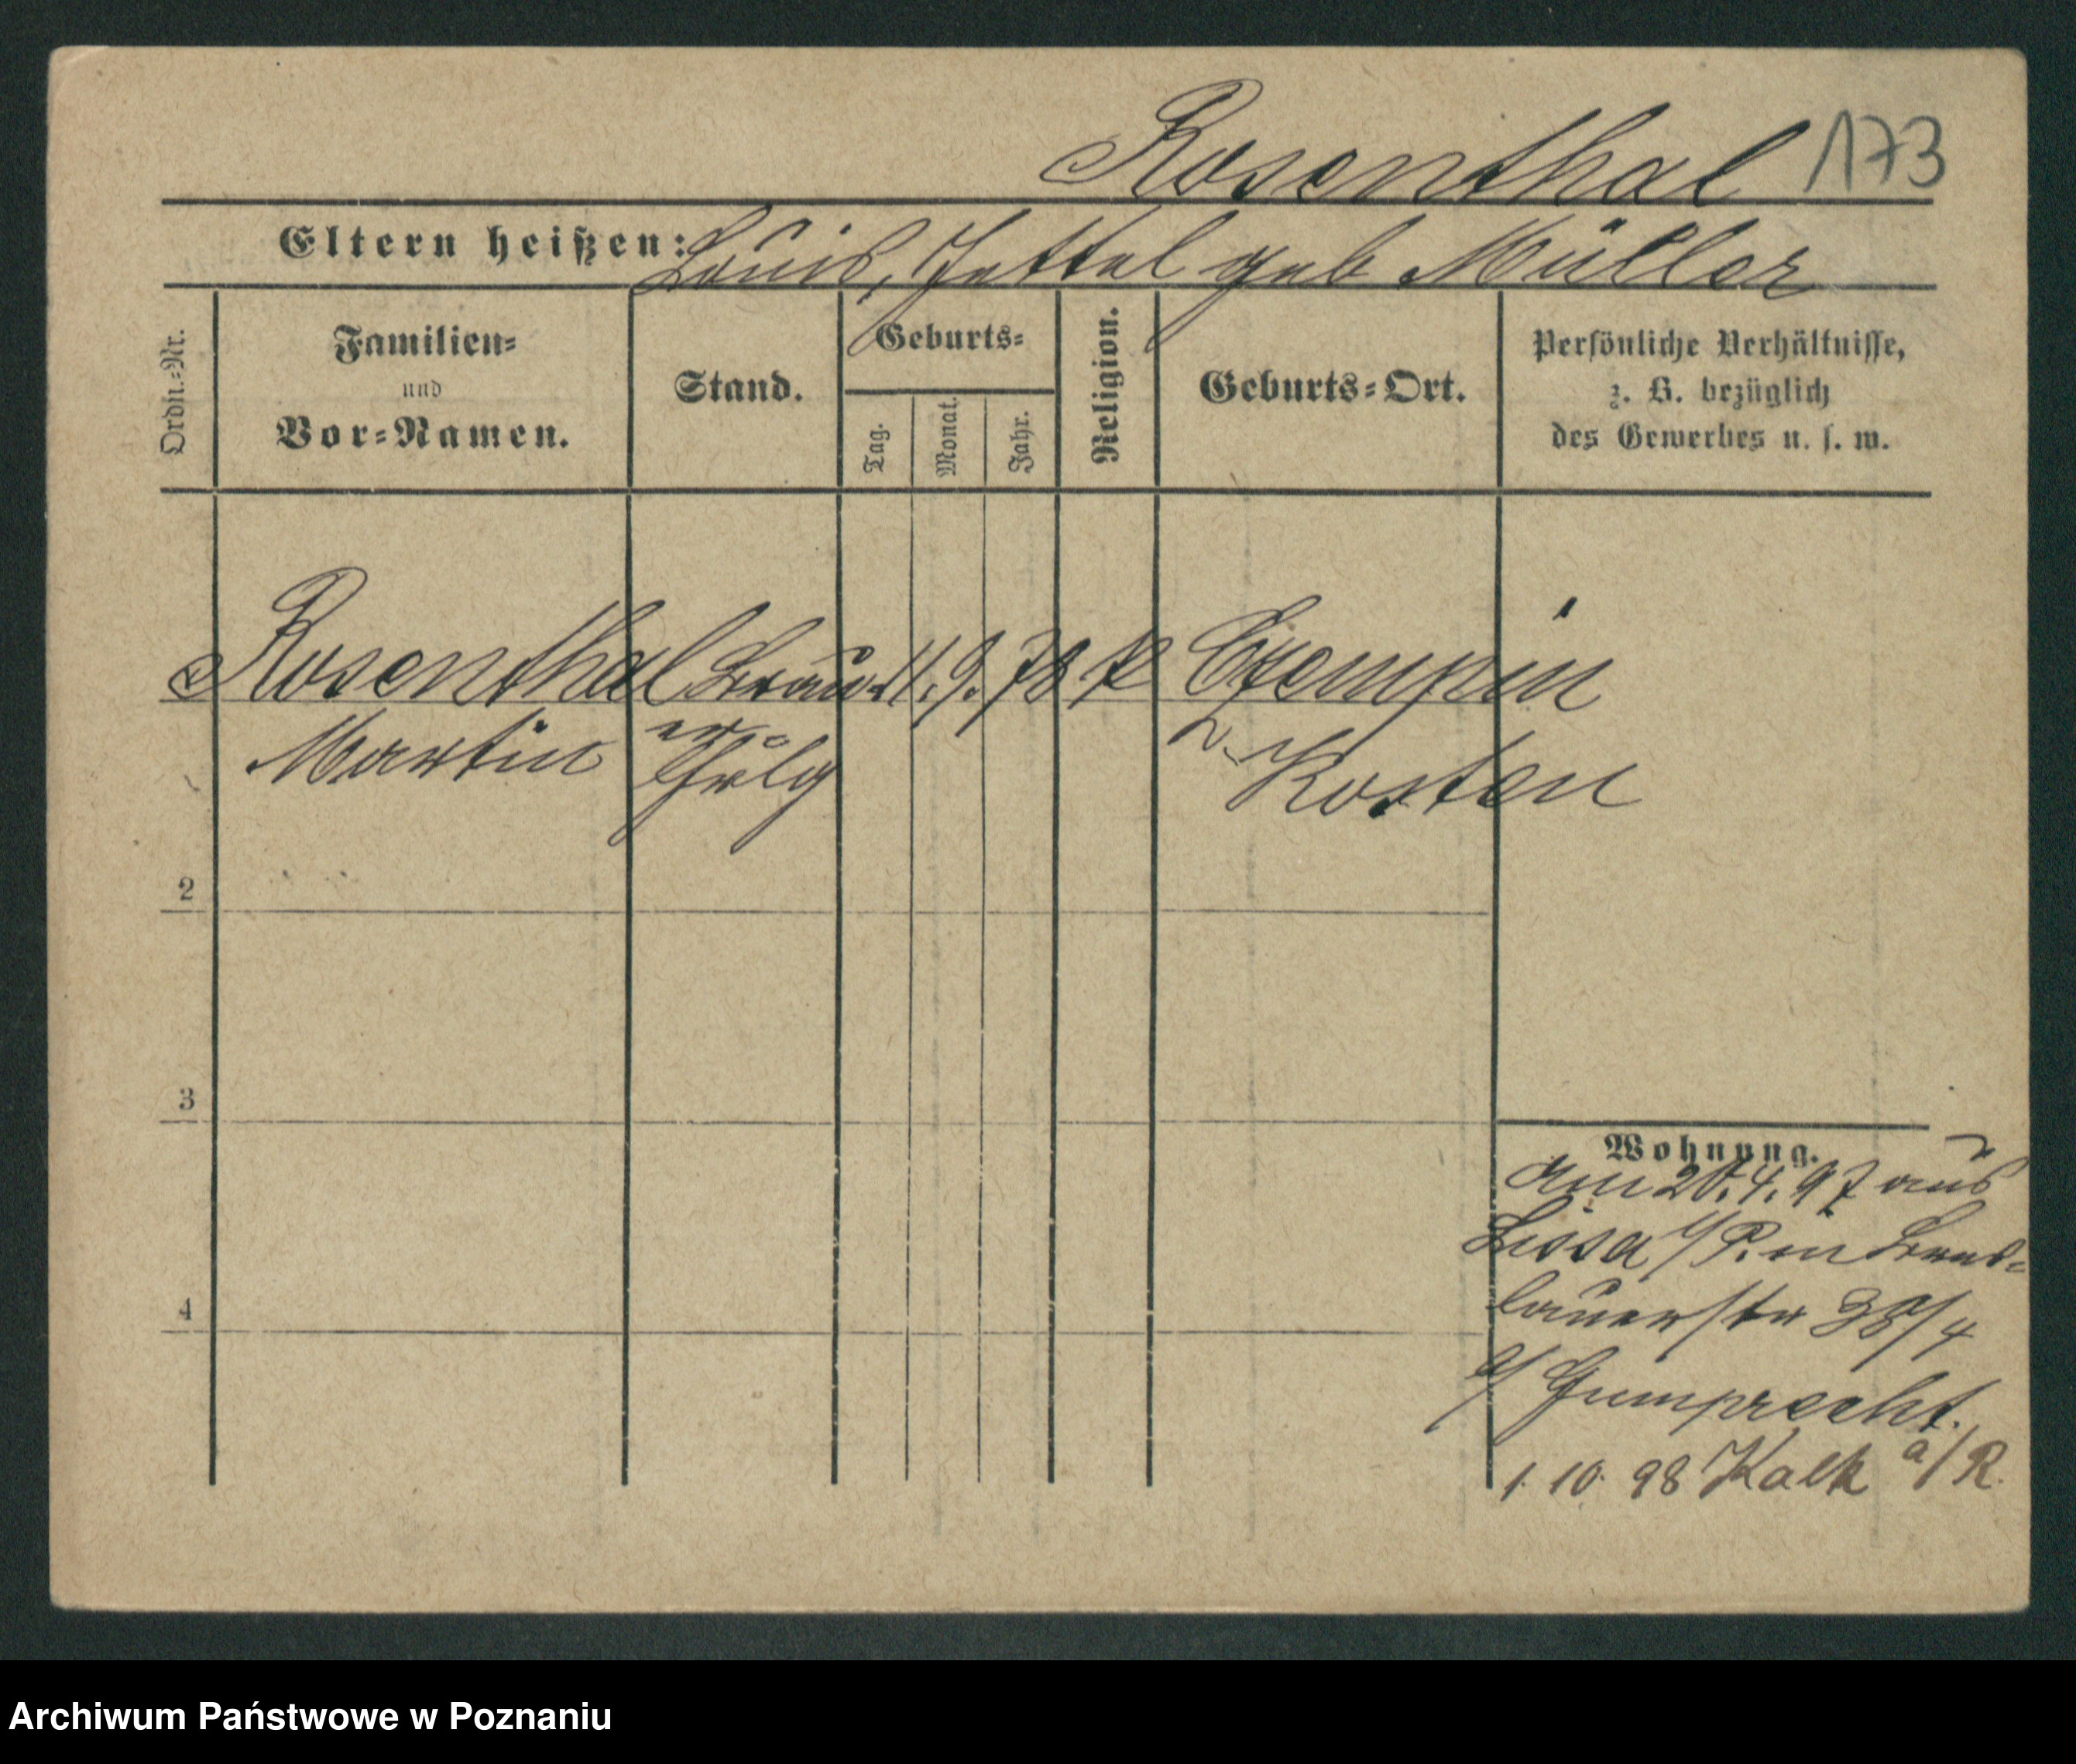 Rosenthal 173
Eltern heißen: Louis, Jettel geb Müller
Ordn.-Nr.
Familien-
und
Vor-Namen.
Stand.
Geburts-
Tag.
Monat.
Jahr.
Religion.
Geburts-Ort.
Persönliche Verhältnisse,
z. B. bezüglich
des Gewerbes u. s. w.
Rosenthal 11. 9. 78 Czempin
Martin
Kosten
2
3
4
Wohnung.
am 20. 4. 97 aus
Lissa i/P. in Bres-
lauerstr 38/4
b/ Gumprecht.
1. 10. 98 Kalk a/R.
Archiwum Państwowe w Poznaniu